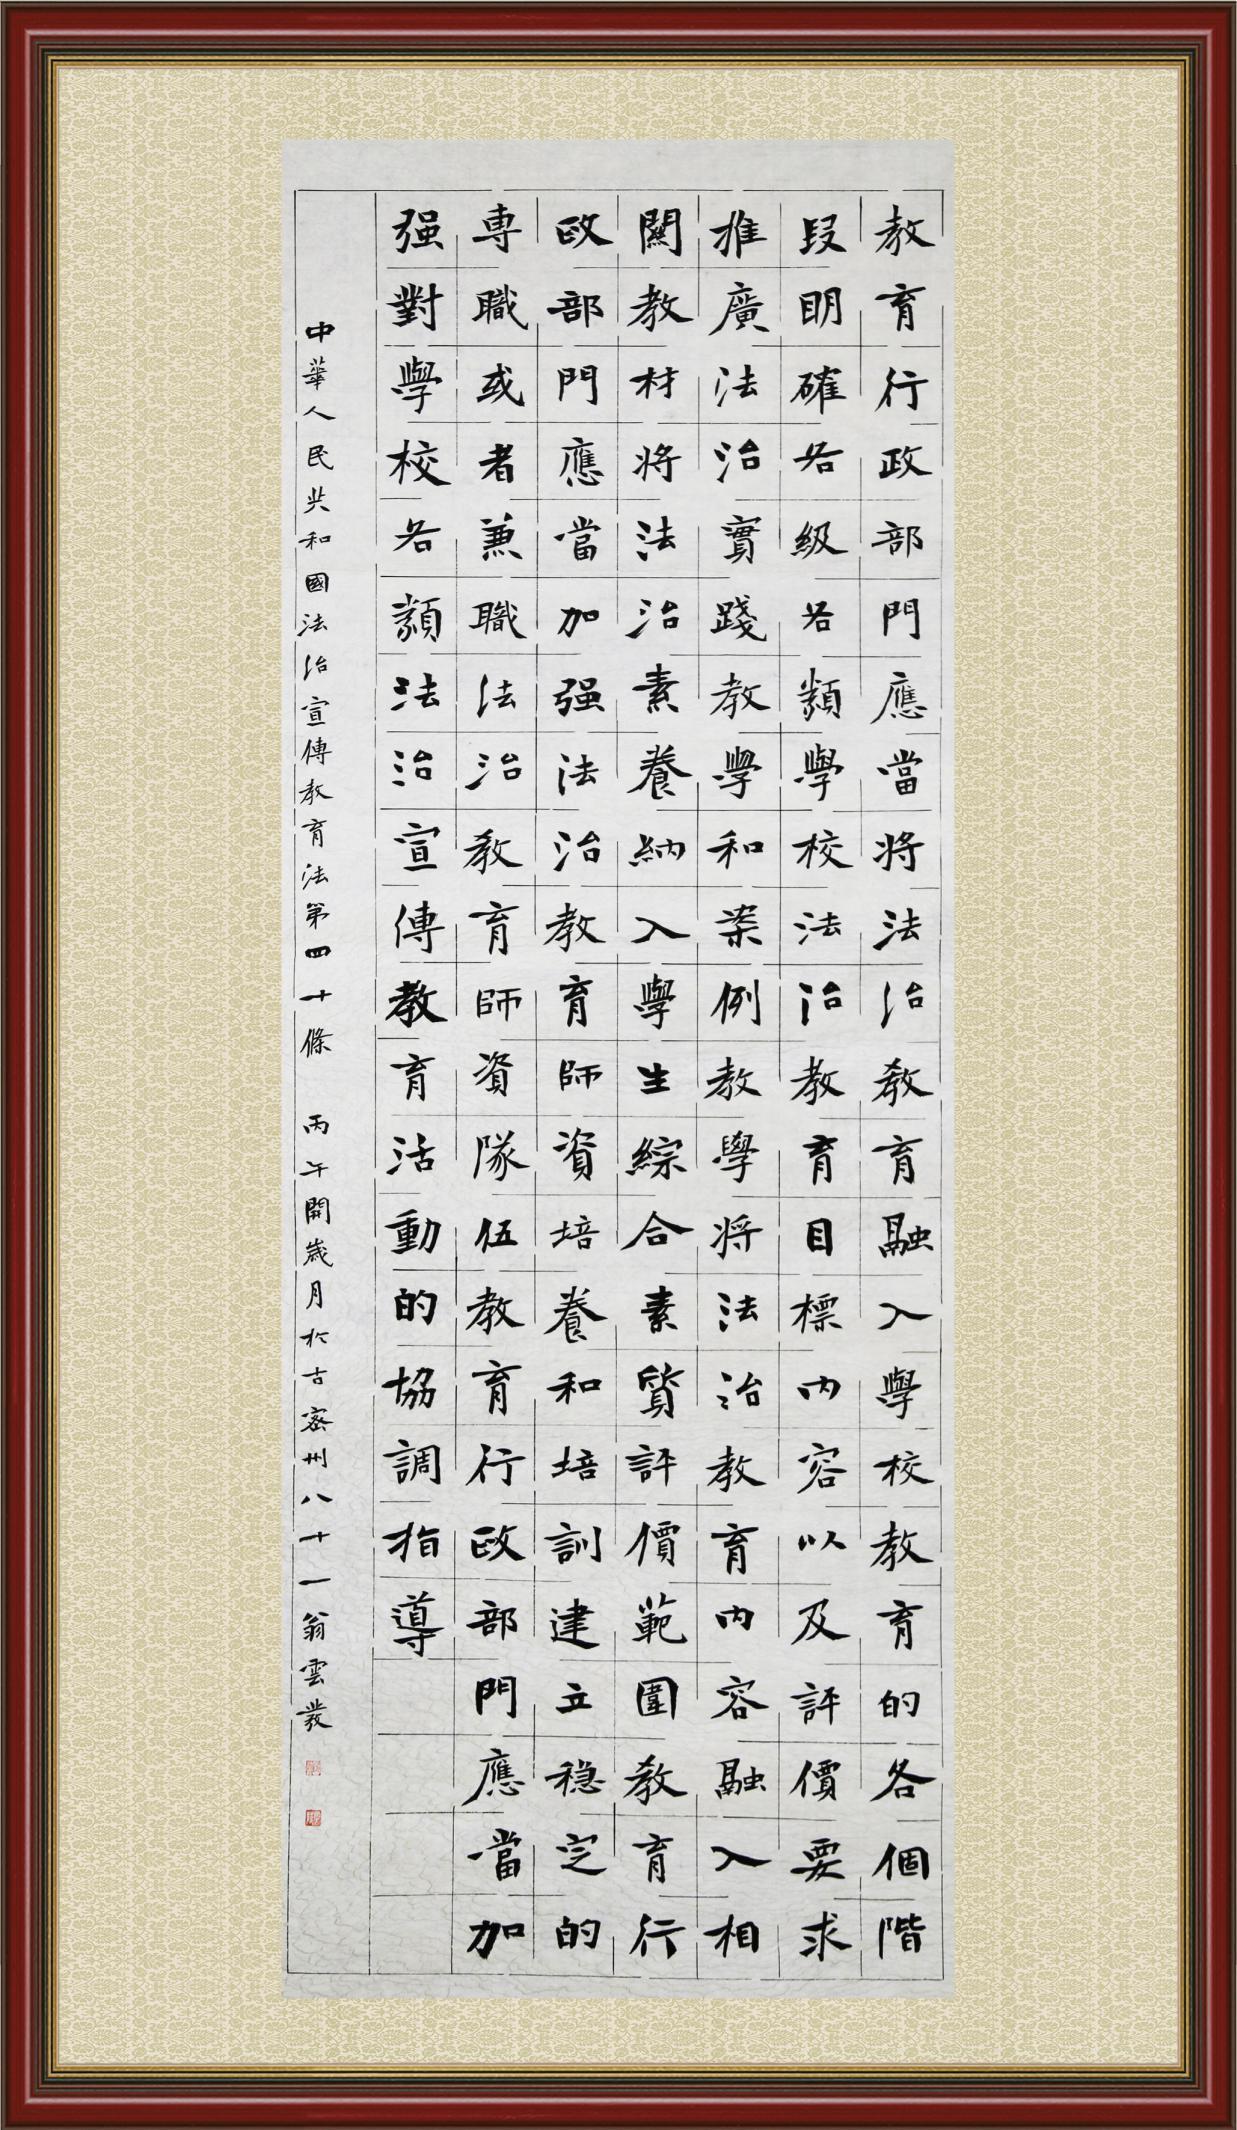 教育行政部門應當將法治教育融入學校教育的各個階
段明確各級各類學校法治教育目標內容以及評價要求
推廣法治實踐教學和案例教學將法治教育內容融入相
關教材將法治素養納入學生綜合素質評價範圍教育行
政部門應當加强法治教育師資培養和培訓建立穩定的
專職或者兼職法治教育師資隊伍教育行政部門應當加
强對學校各類法治宣傳教育活動的協調指導
中華人民共和國法治宣傳教育法第四十條 丙午開歲月於古密州八十一翁雲